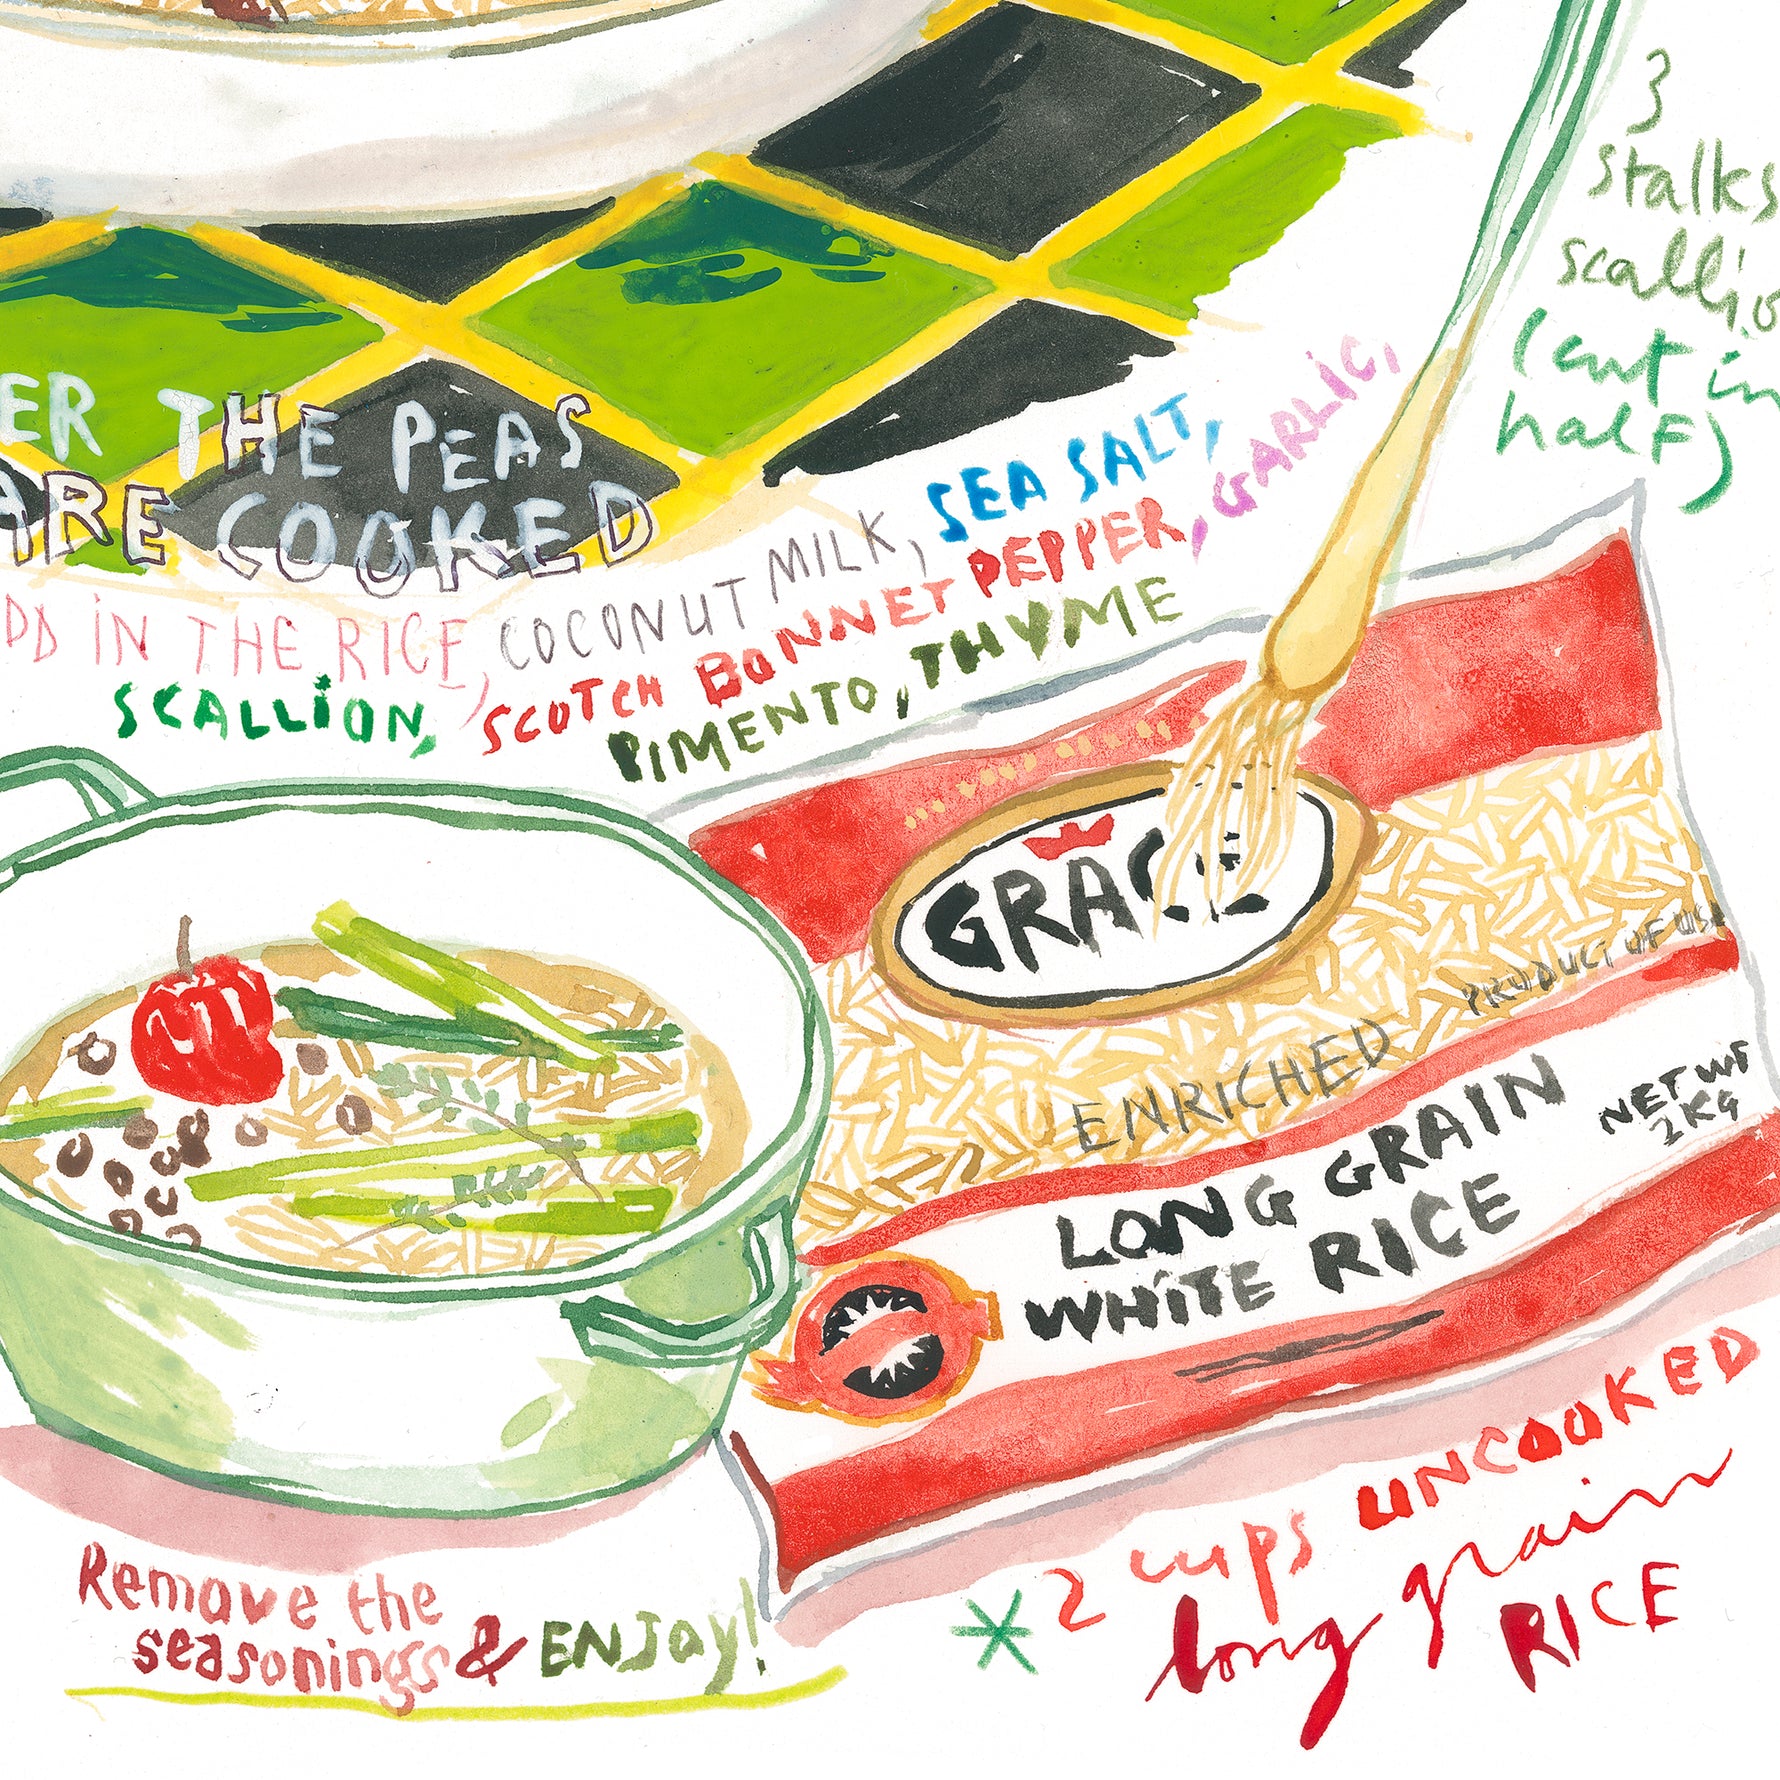 3
stalks
scallio
(cut in
half)
ER THE PEAS
ARE COOKED
DD IN THE RICE, COCONUT MILK, SEA SALT,
SCALLION, SCOTCH BONNET PEPPER, GARLIC,
PIMENTO, THYME
GRACE
PRODUCT OF USA
ENRICHED
LONG GRAIN
WHITE RICE
NET WT
2KG
Remove the
seasonings & ENJoy!
*2 cups UNCOOKED
long grain
RICE